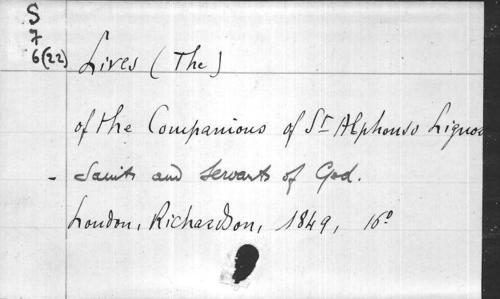 S
7
6(22)
Lives (The)
of the Companions of St Alphonso Liguo
- Saints and Servants of God.
London, Richardson, 1849, 16º